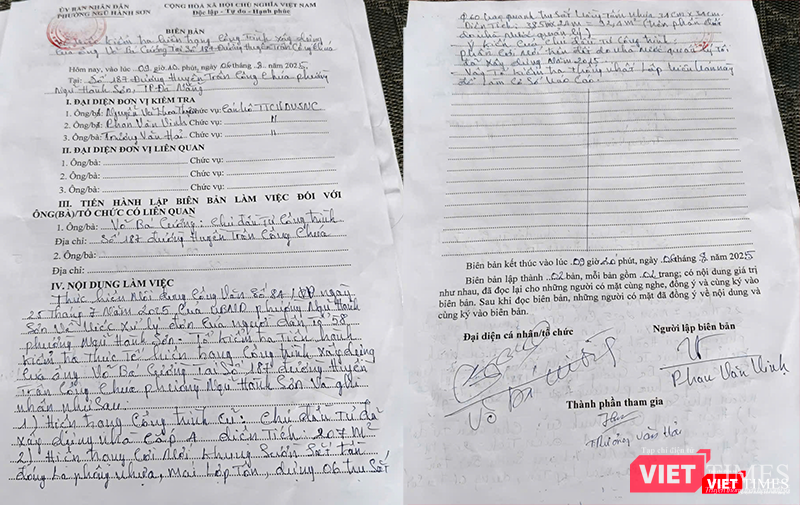 ỦY BAN NHÂN DÂN
PHƯỜNG NGŨ HÀNH SƠN
CỘNG HÒA XÃ HỘI CHỦ NGHĨA VIỆT NAM
Độc lập - Tự do - Hạnh phúc
BIÊN BẢN
kiểm tra hiện trạng công trình xây dựng
của ông Võ Bá Cường Tại Số 187 Đường Huyền Trân Công Chúa
Hôm nay, vào lúc 09 giờ 00 phút, ngày 06 tháng 8 năm 2025
Tại: Số 187 Đường Huyền Trân Công Chúa phường
Ngũ Hành Sơn, TP. Đà Nẵng
I. ĐẠI DIỆN ĐƠN VỊ KIỂM TRA
1. Ông/bà: Nguyễn Chức vụ:
2. Ông/bà: Phan Văn Vinh Chức vụ: "
3. Ông/bà: Trương Văn Hải Chức vụ: "
II. ĐẠI DIỆN ĐƠN VỊ LIÊN QUAN
1. Ông/bà: Chức vụ:
2. Ông/bà: Chức vụ:
3. Ông/bà: Chức vụ:
III. TIẾN HÀNH LẬP BIÊN BẢN LÀM VIỆC ĐỐI VỚI
ÔNG(BÀ)/TỔ CHỨC CÓ LIÊN QUAN
1. Ông/bà: Võ Bá Cường: Chủ đầu tư công trình
Địa chỉ: Số 187 đường Huyền Trân Công Chúa
2. Ông/bà:
Địa chỉ:
IV. NỘI DUNG LÀM VIỆC
Thực hiện Nội dung Công Văn Số 84 / ngày
25 tháng 7 năm 2025 của UBND phường Ngũ Hành
Sơn Về Việc xử lý đơn của người dân tổ 58
phường Ngũ Hành Sơn. Tổ kiểm tra Tiến hành
kiểm tra thực tế hiện trạng công trình xây dựng
của ông Võ Bá Cường Tại Số 187 đường Huyền
Trân Công Chúa phường Ngũ Hành Sơn Và ghi
nhận như sau
1) Hiện trạng công trình cũ: Chủ đầu Tư đã
xây dựng nhà cấp 4 diện Tích: 207 m²
2) Hiện trạng cơi nới khung sườn sắt trần
đóng la phông nhựa, mái lợp tôn, dùng 06 trụ sắt
ϕ 60 bao quanh trụ sắt bằng tấm nhựa 31cm x 31cm.
Diện tích
do nhà nước quản lý)
- Ý kiến của Chủ đầu tư công trình
do nhà nước quản lý tôi
đã xây dựng năm 2015
- Vậy Tổ kiểm tra thống nhất lập biên bản này
để làm cơ sở báo cáo.
Biên bản kết thúc vào lúc 09 giờ 20 phút, ngày 06 tháng 8 năm 2025
Biên bản lập thành 02 bản, mỗi bản gồm 02 trang; có nội dung giá trị
như nhau, đã đọc lại cho những người có mặt cùng nghe, đồng ý và cùng ký vào
biên bản. Sau khi đọc biên bản, những người có mặt đồng ý về nội dung và
cùng ký vào biên bản.
Đại diện cá nhân/tổ chức
Người lập biên bản
Võ Bá Cường
Phan Văn Vinh
Thành phần tham gia
Trương Văn Hải
Tạp chí điện tử
VIETTIMES
VIETTIMES